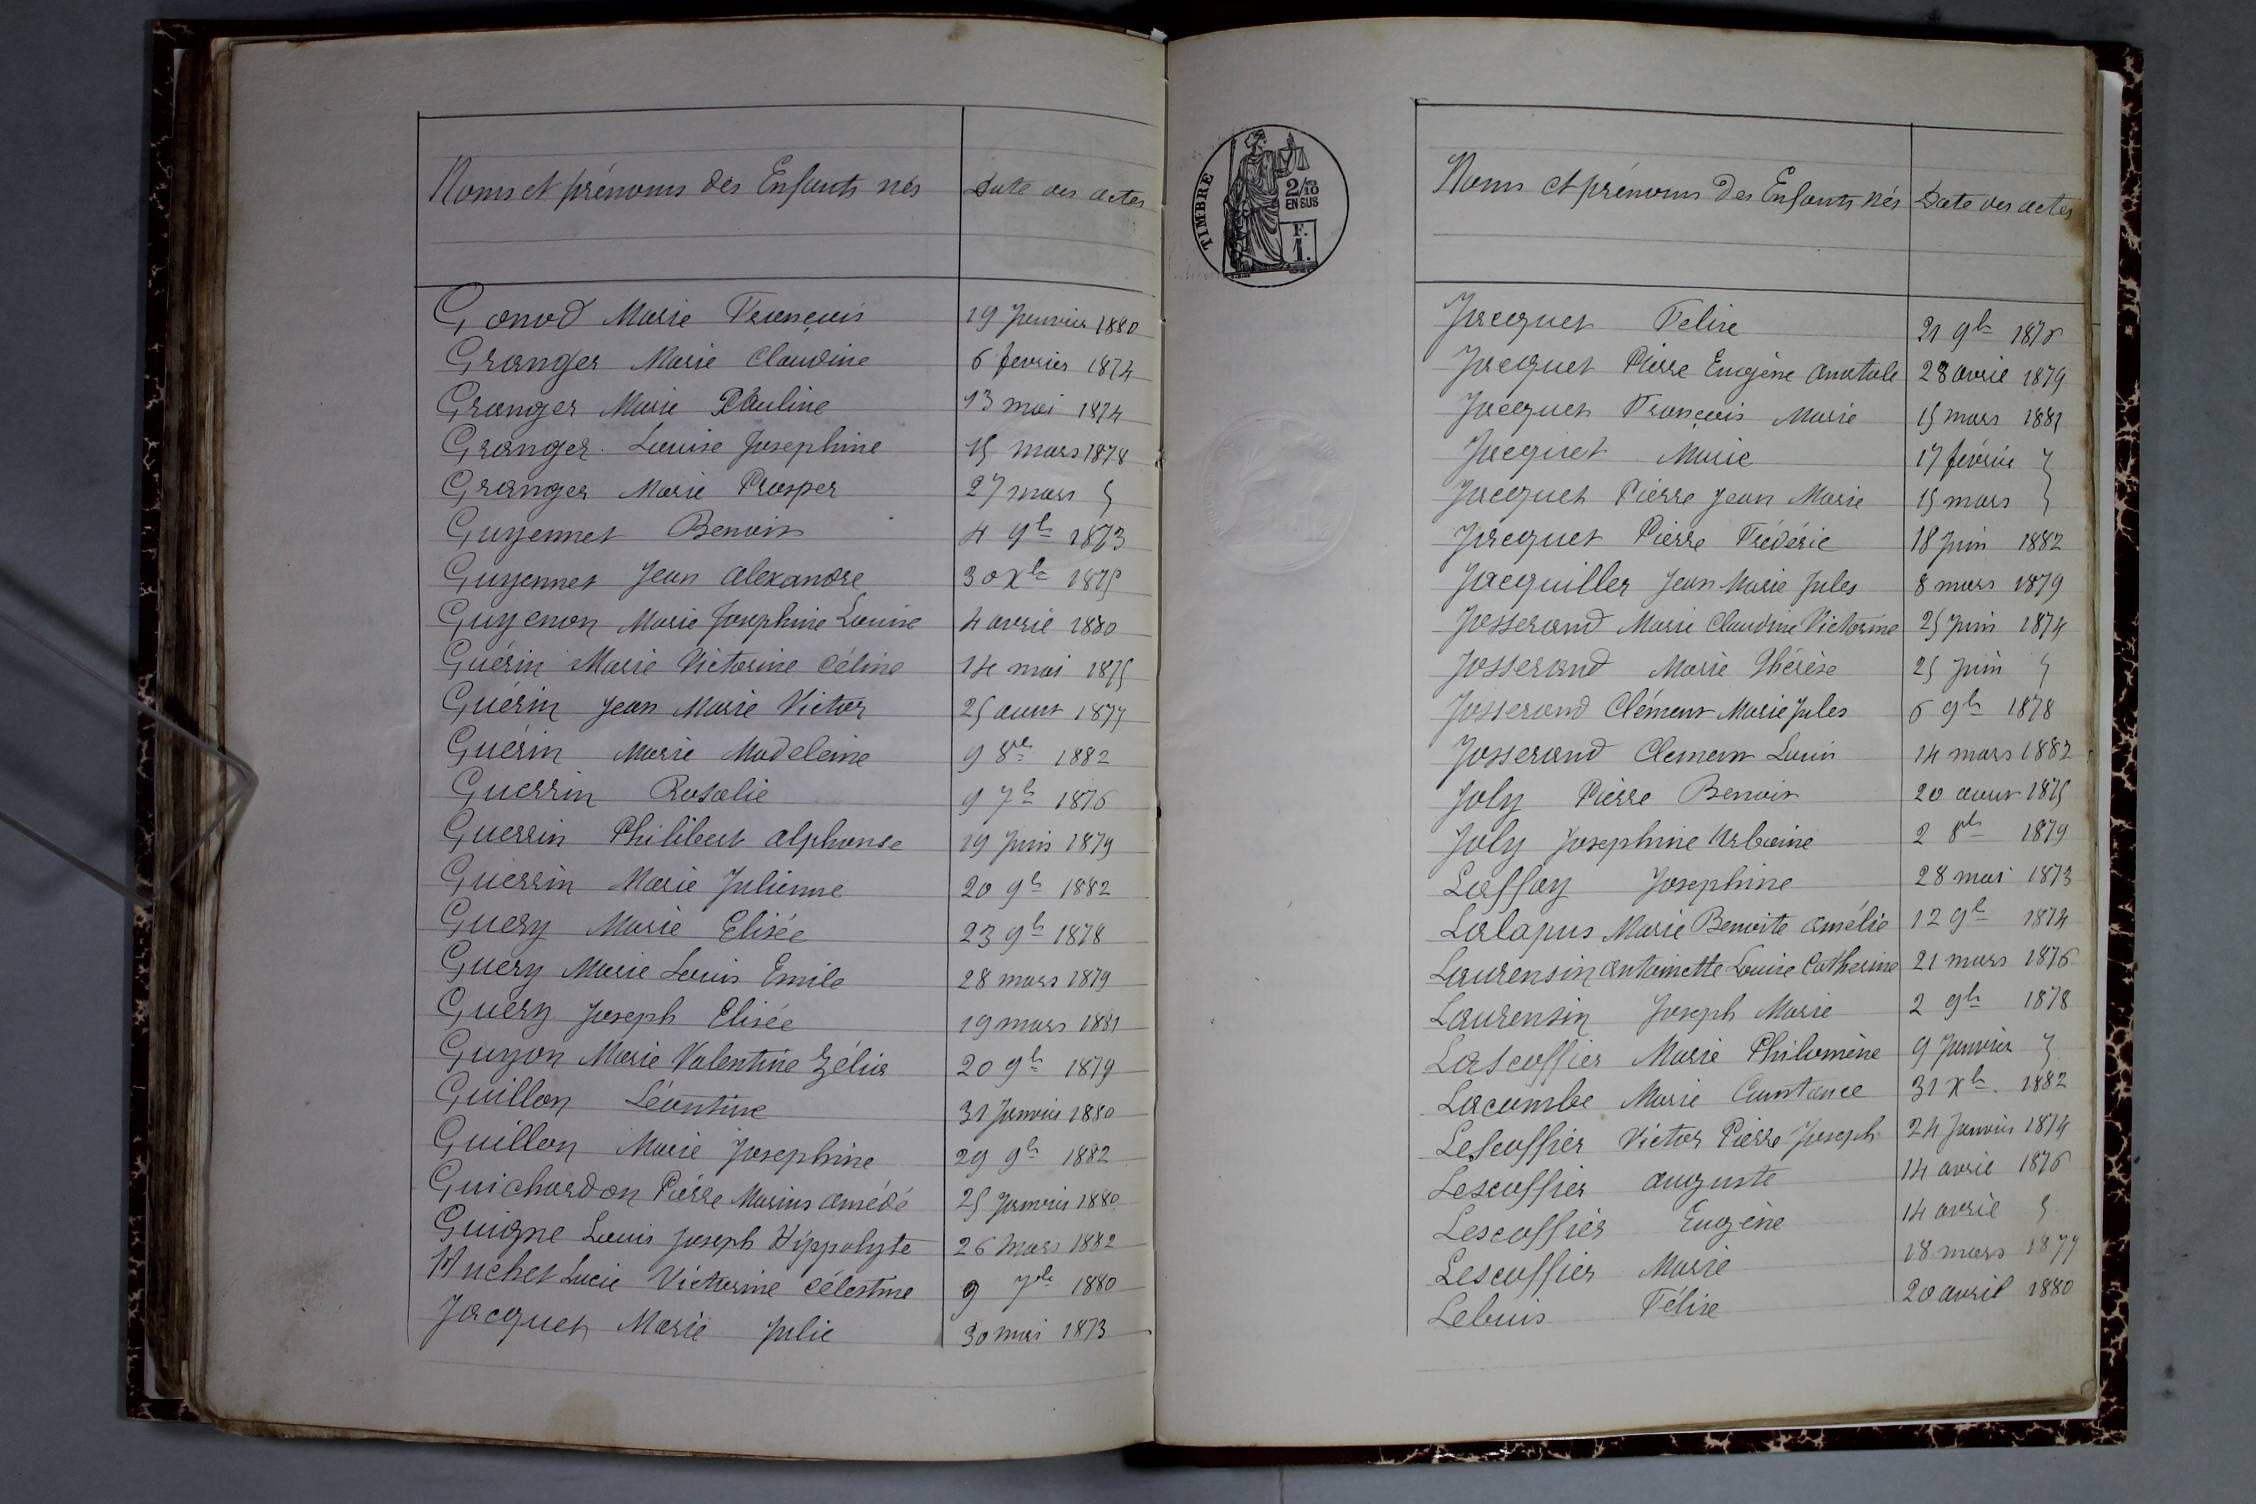 Noms et prénoms des Enfants nés Date des actes
Gonod Marie François 19 Janvier 1880
Granger Marie Claudine 6 fevrier 1874
Granger Marie Pauline 13 mai 1874
Granger Louise Josephine 15 mars 1878
Granger Marie Prosper 27 mars
Guyennet Benoit 4 9b 1873
Guyennet Jean alexandre 30 Xb 1875
Guyenon Marie Josephine Louise 4 avril 1880
Guérin Marie Victorine Céline 14 mai 1875
Guérin Jean Marie Victor 25 aout 1877
Guérin Marie Madeleine 9 8b 1882
Guerrin Rosalie 9 7b 1876
Guerrin Philibert alphonse 19 Juin 1879
Guerrin Marie Julienne 20 9b 1882
Guery Marie Elisée 23 9b 1878
Guery Marie Louis Emile 28 mars 1879
Guery Joseph Elisée 19 mars 1881
Guyon Marie Valentine Zélia 20 9b 1879
Guillon Léontine 31 Janvier 1880
Guillon Marie Josephine 29 9b 1882
Guichardon Pierre Marius amédé 25 Janvier 1880
Guigne Louis Joseph Hippolyte 26 Mars 1882
Huchet Lucie Victorine Célestine 9 7b 1880
Jacquet Marie Julie 30 mai 1873
TIMBRE
2/10
EN SUS
F.
1.
Noms et prénoms des Enfants nés Date des actes
Jacquet Felix 21 9b 1876
Jacquet Pierre Eugène anatole 28 avril 1879
Jacquet François Marie 15 mars 1881
Jacquet Marie 17 février
Jacquet Pierre Jean Marie 15 mars
Jacquet Pierre Frédéric 18 Juin 1882
Jacquiller Jean Marie Jules 8 mars 1879
Josserand Marie Claudine Victorine 25 Juin 1874
Josserand Marie Thérèse 25 Juin
Josserand Clément Marie Jules 6 9b 1878
Josserand Clement Louis 14 mars 1882
Joly Pierre Benoit 20 aout 1875
Joly Josephine Urbaine 2 8b 1879
Laffay Josephine 28 mai 1873
Lalapus Marie Benoite amélie 12 9b 1874
Laurensin antoinette Louise Catherine 21 mars 1876
Laurensin Joseph Marie 2 9b 1878
Lascoffier Marie Philomène 9 Janvier
Lacombe Marie Constance 31 Xb 1882
Lescoffier Victor Pierre Joseph 24 Janvier 1874
Lescoffier auguste 14 avril 1876
Lescoffier Eugène 14 avril
Lescoffier Marie 18 mars 1877
Lebuis Félix 20 avril 1880